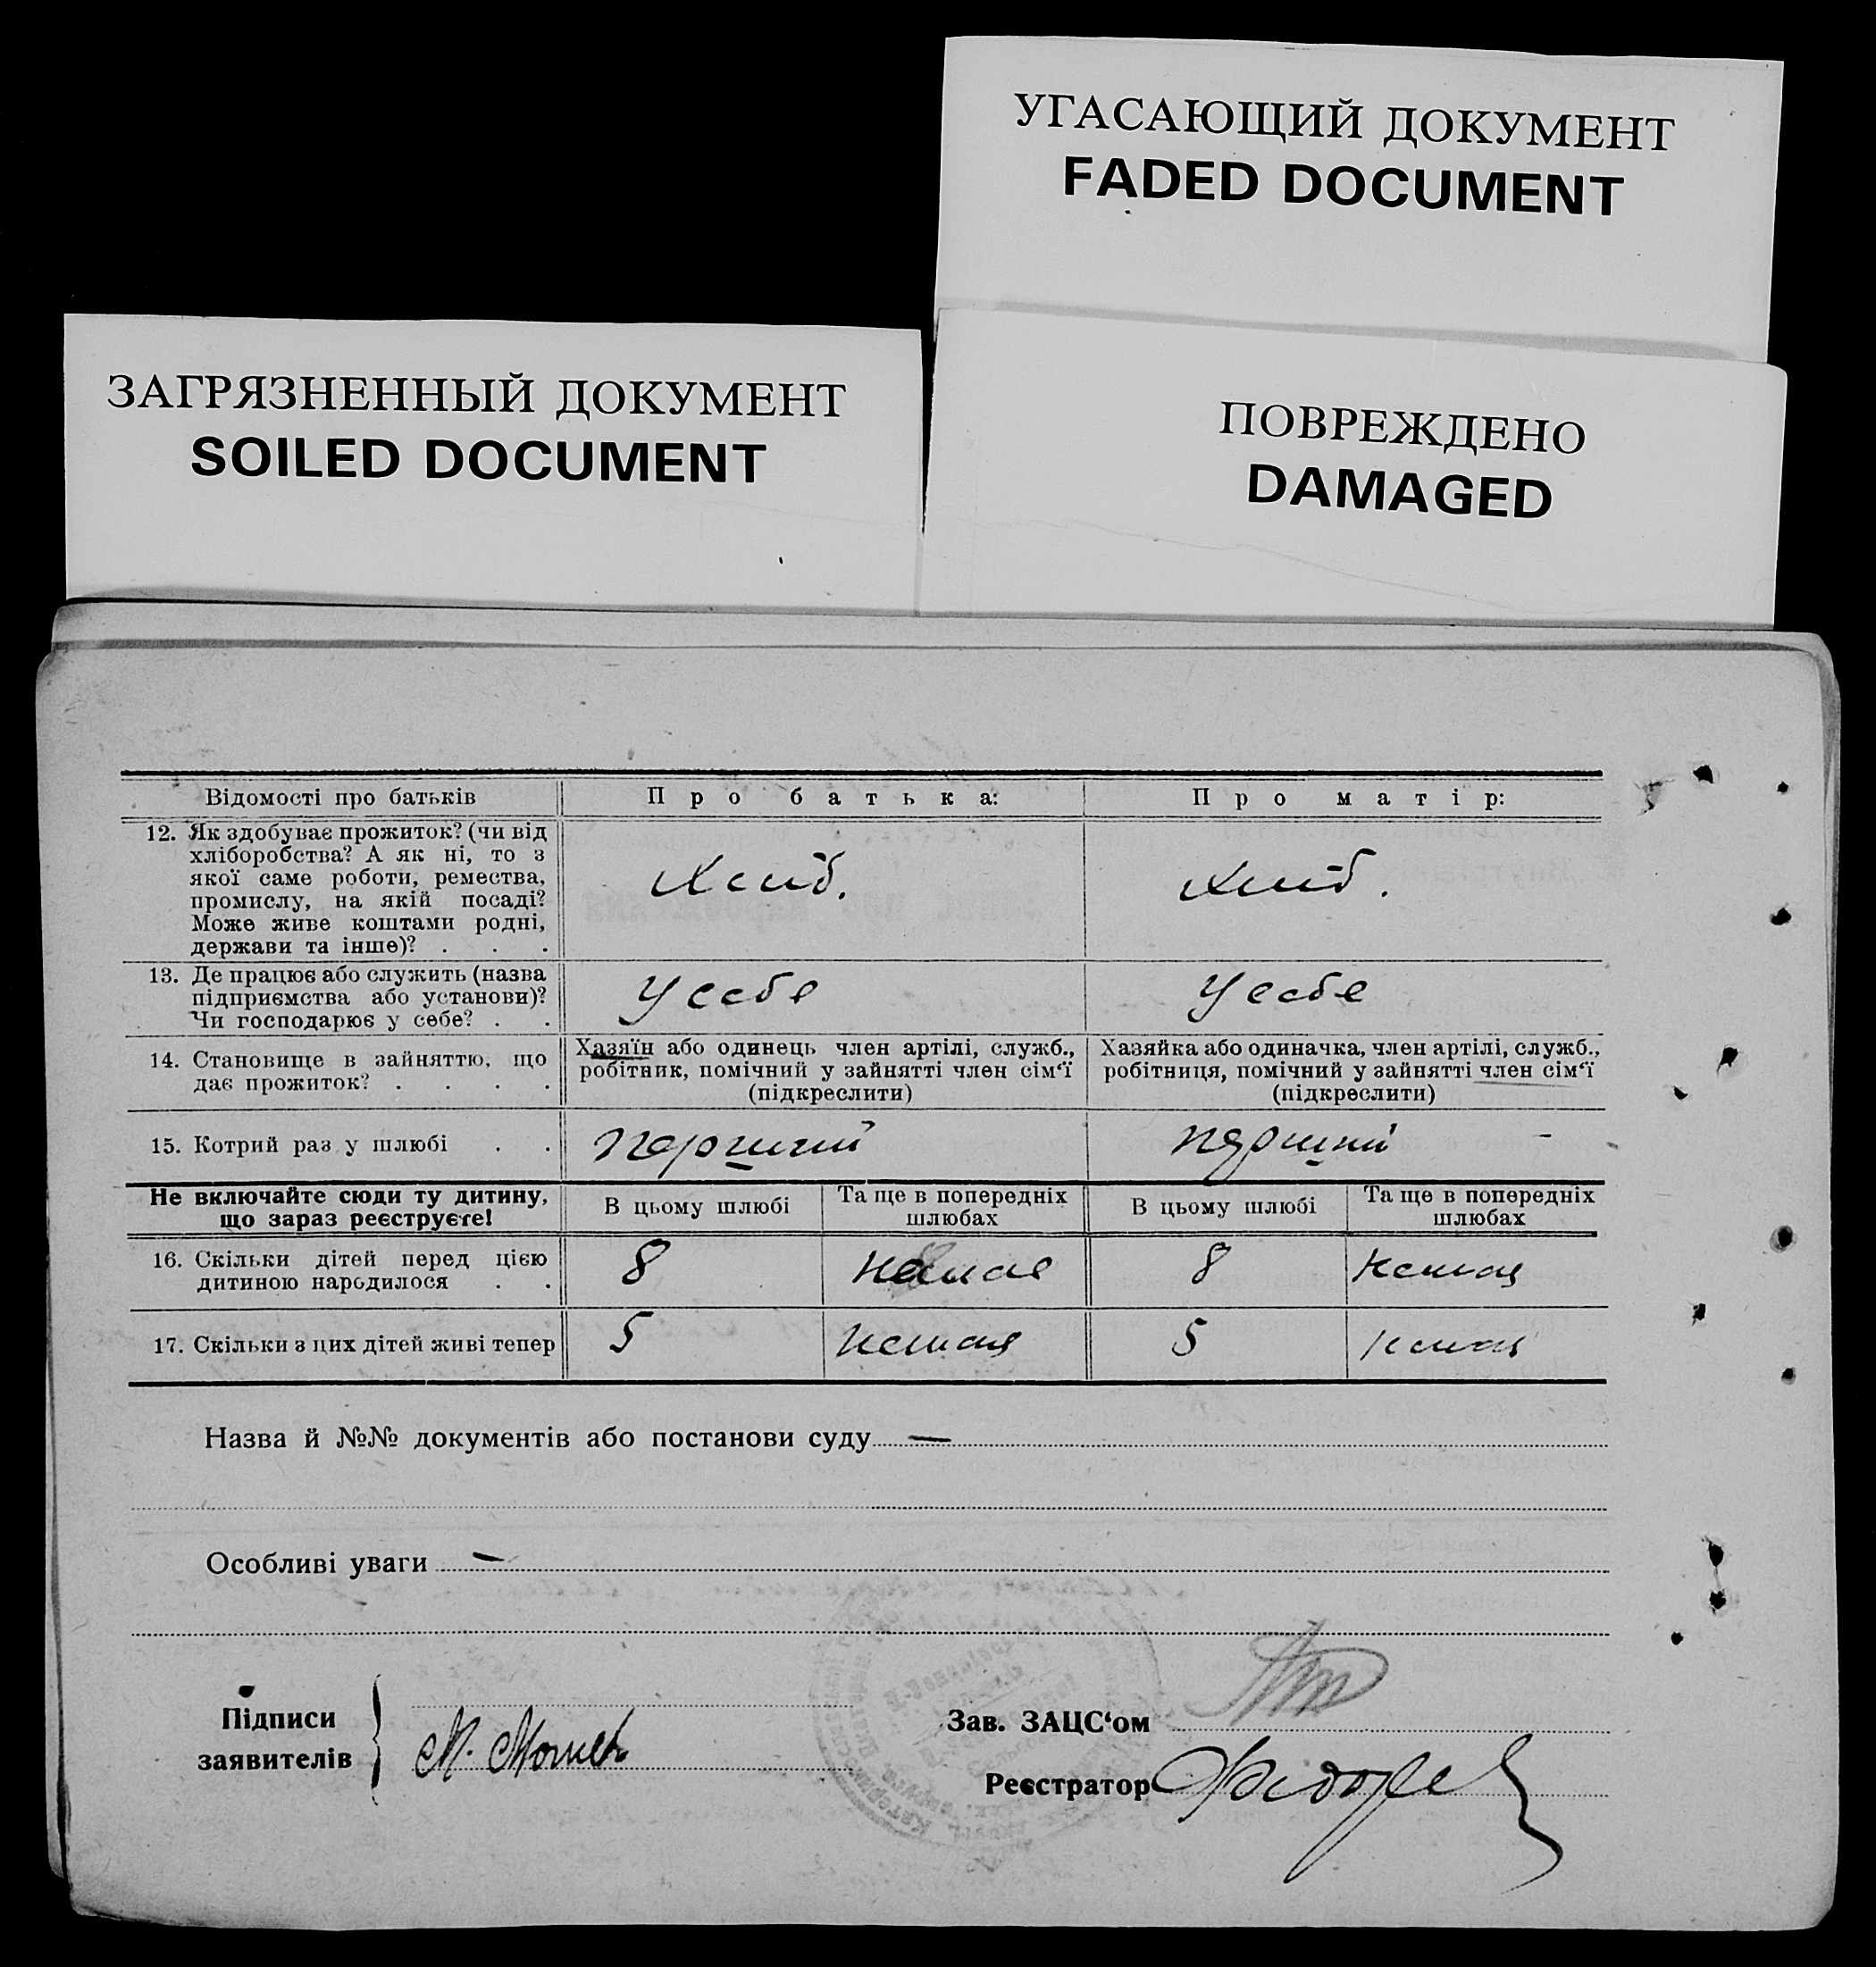 УГАСАЮЩИЙ ДОКУМЕНТ
FADED DOCUMENT
ЗАГРЯЗНЕННЫЙ ДОКУМЕНТ
SOILED DOCUMENT
ПОВРЕЖДЕНО
DAMAGED
Відомості про батьків
Про батька:
Про матір:
12. Як здобуває прожиток? (чи від
хліборобства? А як ні, то з
якої саме роботи, ремества,
промислу, на якій посаді?
Може живе коштами родні,
держави та інше)? . . .
Хліб.
Хліб.
13. Де працює або служить (назва
підприємства або установи)?
Чи господарює у себе? . .
У себе
У себе
14. Становище в зайняттю, що
дає прожиток? . . . .
Хазяїн або одинець член артілі, служб.,
робітник, помічний у зайнятті член сім‘ї
(підкреслити)
Хазяйка або одиначка, член артілі, служб.,
робітниця, помічний у зайнятті член сім‘ї
(підкреслити)
15. Котрий раз у шлюбі . .
перший
перший
Не включайте сюди ту дитину,
що зараз реєструєте!
В цьому шлюбі
Та ще в попередніх
шлюбах
В цьому шлюбі
Та ще в попередніх
шлюбах
16. Скільки дітей перед цією
дитиною народилося . .
8
немає
8
немає
17. Скільки з цих дітей живі тепер
5
немає
5
немає
Назва й №№ документів або постанови суду —
Особливі уваги —
Підписи
заявителів
М.
Зав. ЗАЦС‘ом
Реєстратор